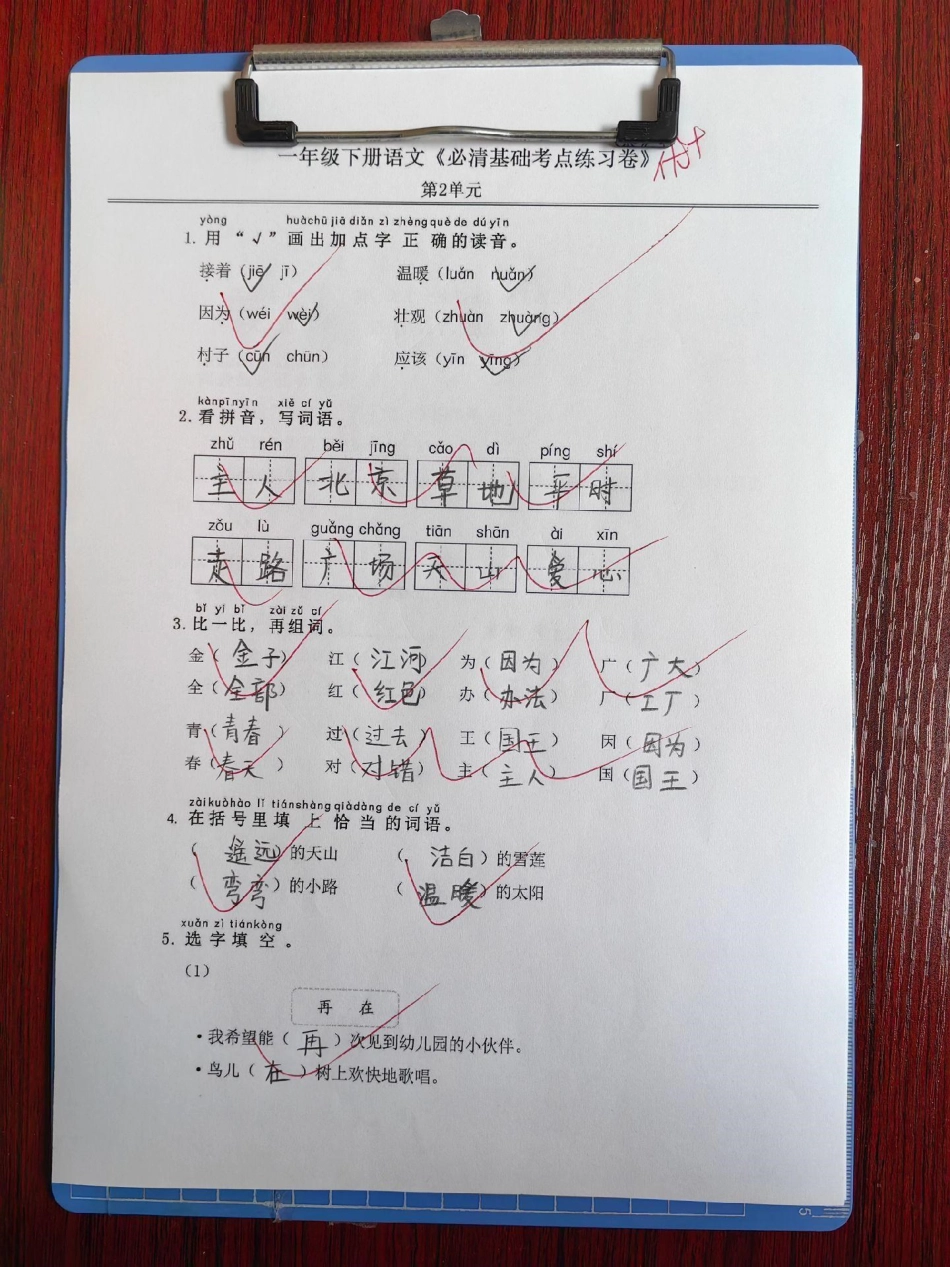 一年级下册语文《必清基础考点练习卷》
第2单元
yòng huàchū jiā diǎn zì zhèng què de dú yīn
1. 用 “√”画出加点字正确的读音。
接着(jiē jī) 温暖(luǎn nuǎn)
因为(wéi wèi) 壮观(zhuàn zhuàng)
村子(cūn chūn) 应该(yīn yīng)
kàn pīn yīn xiě cí yǔ
2. 看拼音，写词语。
zhǔ rén běi jīng cǎo dì píng shí
主人 北京 草地 平时
zǒu lù guǎng chǎng tiān shān ài xīn
走路 广场 天山 爱心
bǐ yi bǐ zài zǔ cí
3. 比一比，再组词。
金(金子) 江(江河) 为(因为) 广(广大)
全(全部) 红(红色) 办(办法) 厂(工厂)
青(青春) 过(过去) 王(国王) 因(因为)
春(春天) 对(对错) 主(主人) 国(国王)
zài kuò hào lǐ tián shàng qià dàng de cí yǔ
4. 在括号里填上恰当的词语。
(遥远)的天山 (洁白)的雪莲
(弯弯)的小路 (温暖)的太阳
xuǎn zì tián kòng
5. 选字填空。
(1)
再 在
·我希望能(再)次见到幼儿园的小伙伴。
·鸟儿(在)树上欢快地歌唱。
5